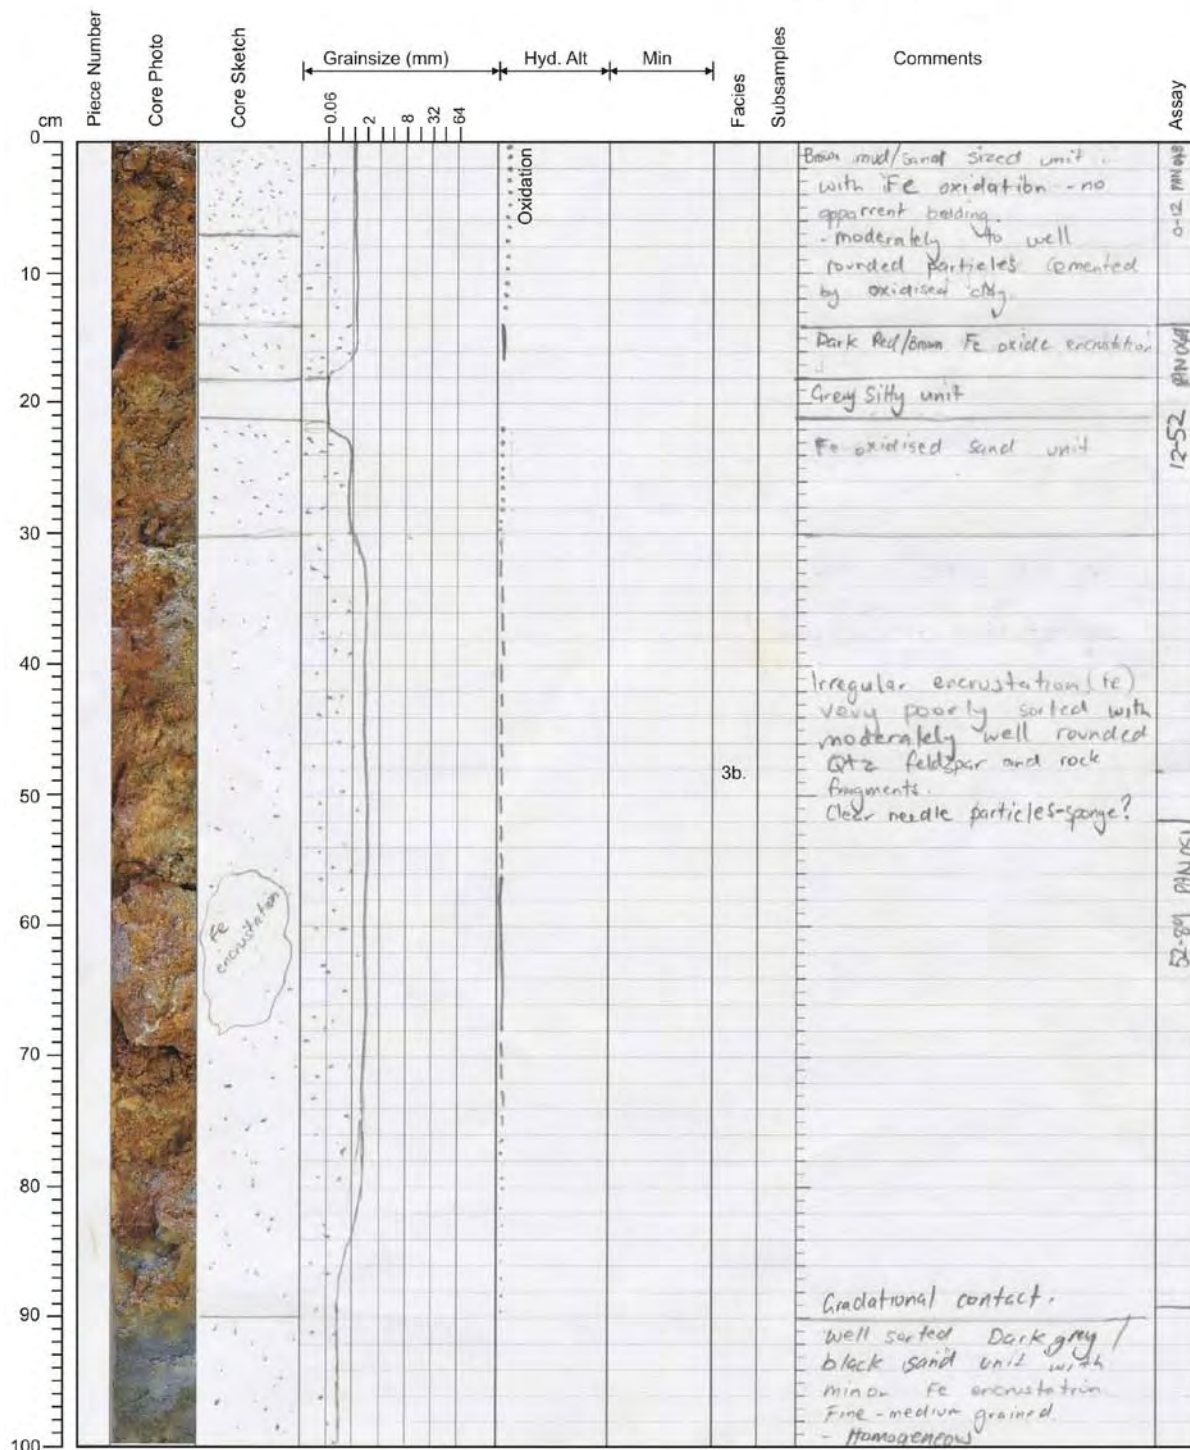 Piece Number
Core Photo
Core Sketch
Grainsize (mm)
Hyd. Alt
Min
Facies
Subsamples
Comments
Assay
cm
0.06
2
8
32
64
0
10
20
30
40
50
60
70
80
90
100
Oxidation
Brown mud/sand sized unit
with Fe oxidation - no
apparrent bedding.
- moderately to well
rounded particles cemented
by oxidised clay.
Dark Red/Brown Fe oxide encrustation
Grey Silty unit
Fe oxidised sand unit
Irregular encrustation (Fe)
very poorly sorted with
moderately well rounded
Qtz feldspar and rock
fragments.
Clear needle particles-sponge?
3b.
Fe
encrustation
Gradational contact.
Well sorted Dark grey /
black sand unit with
minor Fe encrustation
Fine-medium grained
- Homogeneous
0-12
12-52
52-89 PAN051